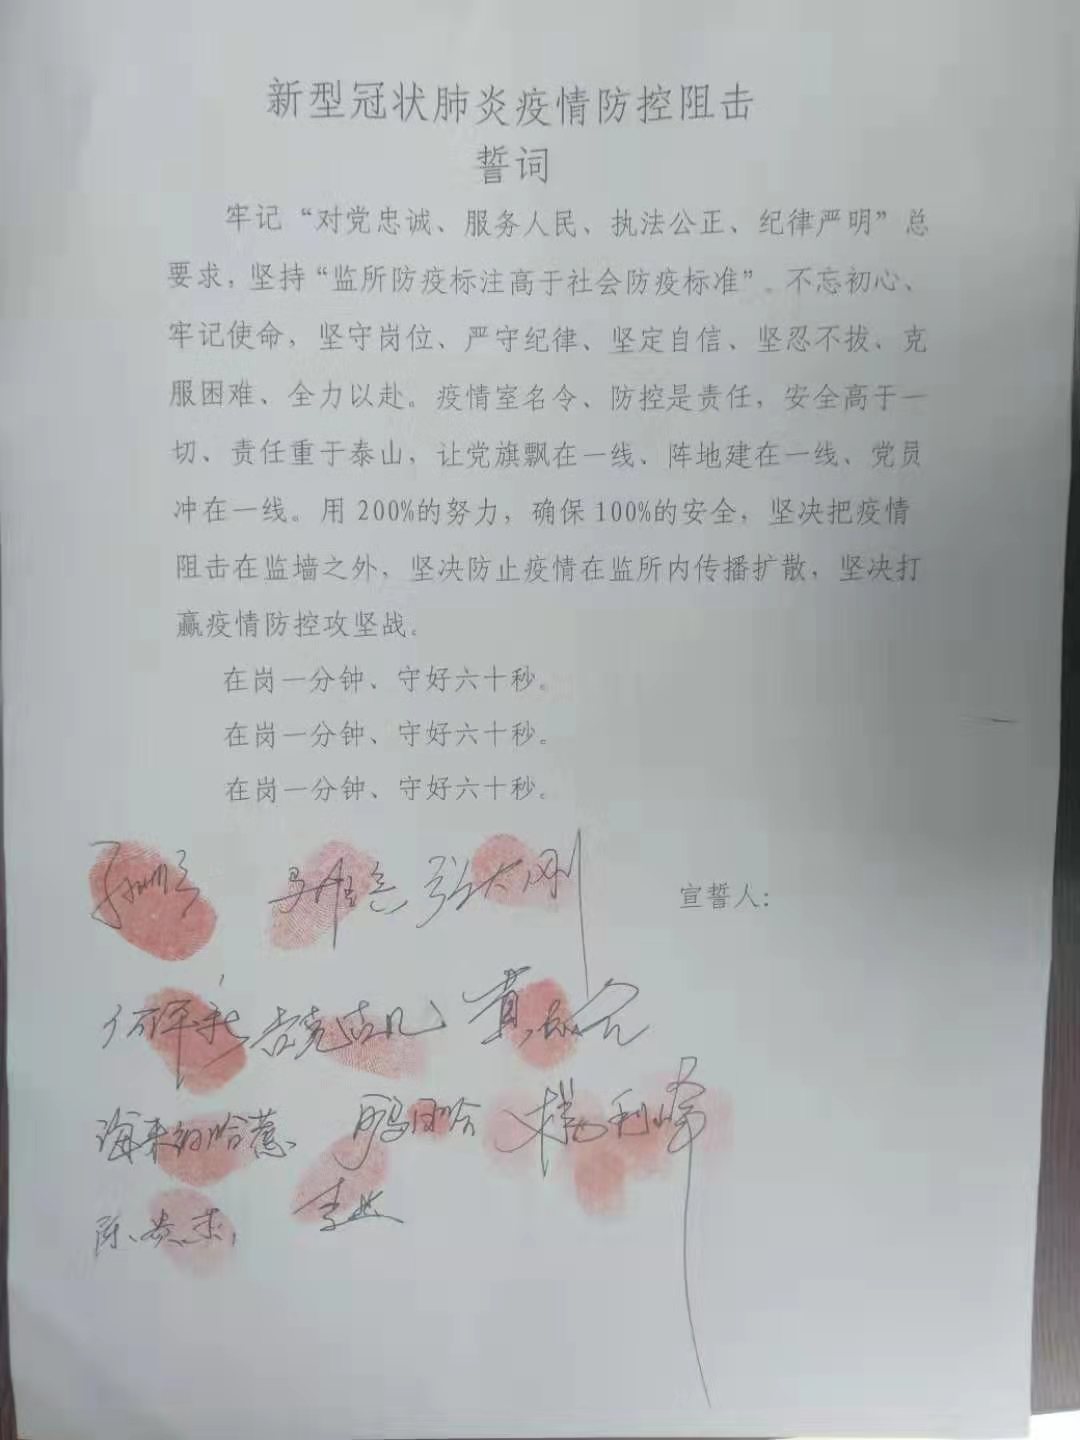 新型冠状肺炎疫情防控阻击
誓词
牢记“对党忠诚、服务人民、执法公正、纪律严明”总
要求，坚持“监所防疫标注高于社会防疫标准”。不忘初心、
牢记使命，坚守岗位、严守纪律、坚定自信、坚忍不拔、克
服困难、全力以赴。疫情室名令、防控是责任，安全高于一
切、责任重于泰山，让党旗飘在一线、阵地建在一线、党员
冲在一线。用200%的努力，确保100%的安全，坚决把疫情
阻击在监墙之外，坚决防止疫情在监所内传播扩散，坚决打
赢疫情防控攻坚战。
在岗一分钟、守好六十秒。
在岗一分钟、守好六十秒。
在岗一分钟、守好六十秒。
张大刚
宣誓人：
吉克古几
海来
利峰
陈
李